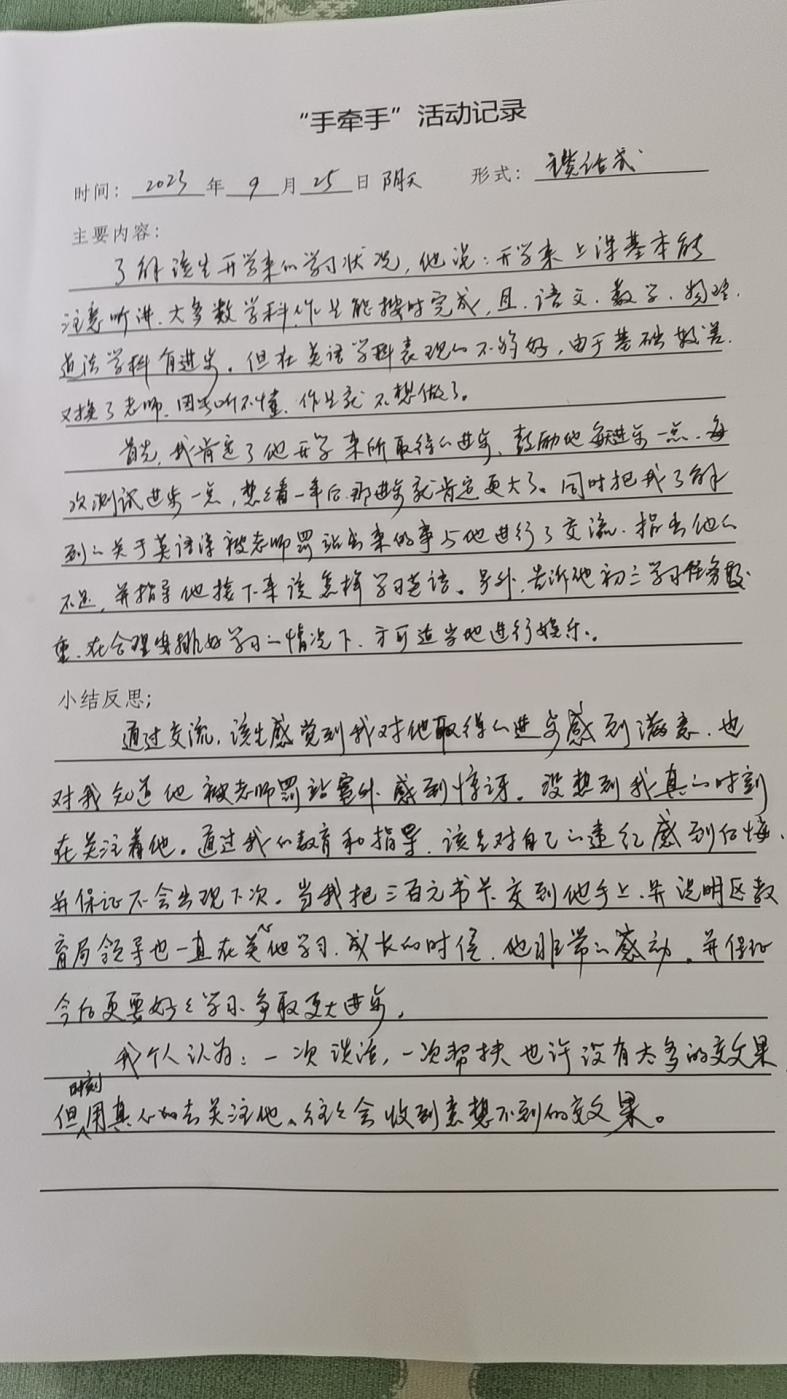 “手牵手”活动记录
时间：2023年9月25日 阴天 形式：谈话式
主要内容：
了解该生开学来的学习状况，他说：开学来上课基本能
注意听讲，大多数学科作业能按时完成，且语文、数学、物理、
道法学科有进步。但在英语学科表现的不够好，由于基础较差，
又换了老师，因此听不懂，作业就不想做了。
首先，我肯定了他开学来所取得的进步，鼓励他每天进步一点，每
次测试进步一点，想想看一年后那进步就肯定更大了。同时把我了解
到的关于英语课被老师罚站出来的事与他进行了交流，指出他的
不足，并指导他接下来该怎样学习英语。另外，告诉他初三学习任务较
重，在合理安排好学习的情况下，方可适当地进行娱乐。
小结反思；
通过交流，该生感觉到我对他取得的进步感到满意，也
对我知道他被老师罚站窗外感到惊讶。没想到我真的时刻
在关注着他。通过我的教育和指导，该生对自己的违纪感到后悔，
并保证不会出现下次。当我把三百元书卡交到他手上，并说明区教
育局领导也一直在关心他学习、成长的时候，他非常的感动，并保证
今后更要好好学习、争取更大进步。
我个人认为：一次谈话，一次帮扶也许没有太多的效果
但时刻用真心的去关注他、往往会收到意想不到的效果。